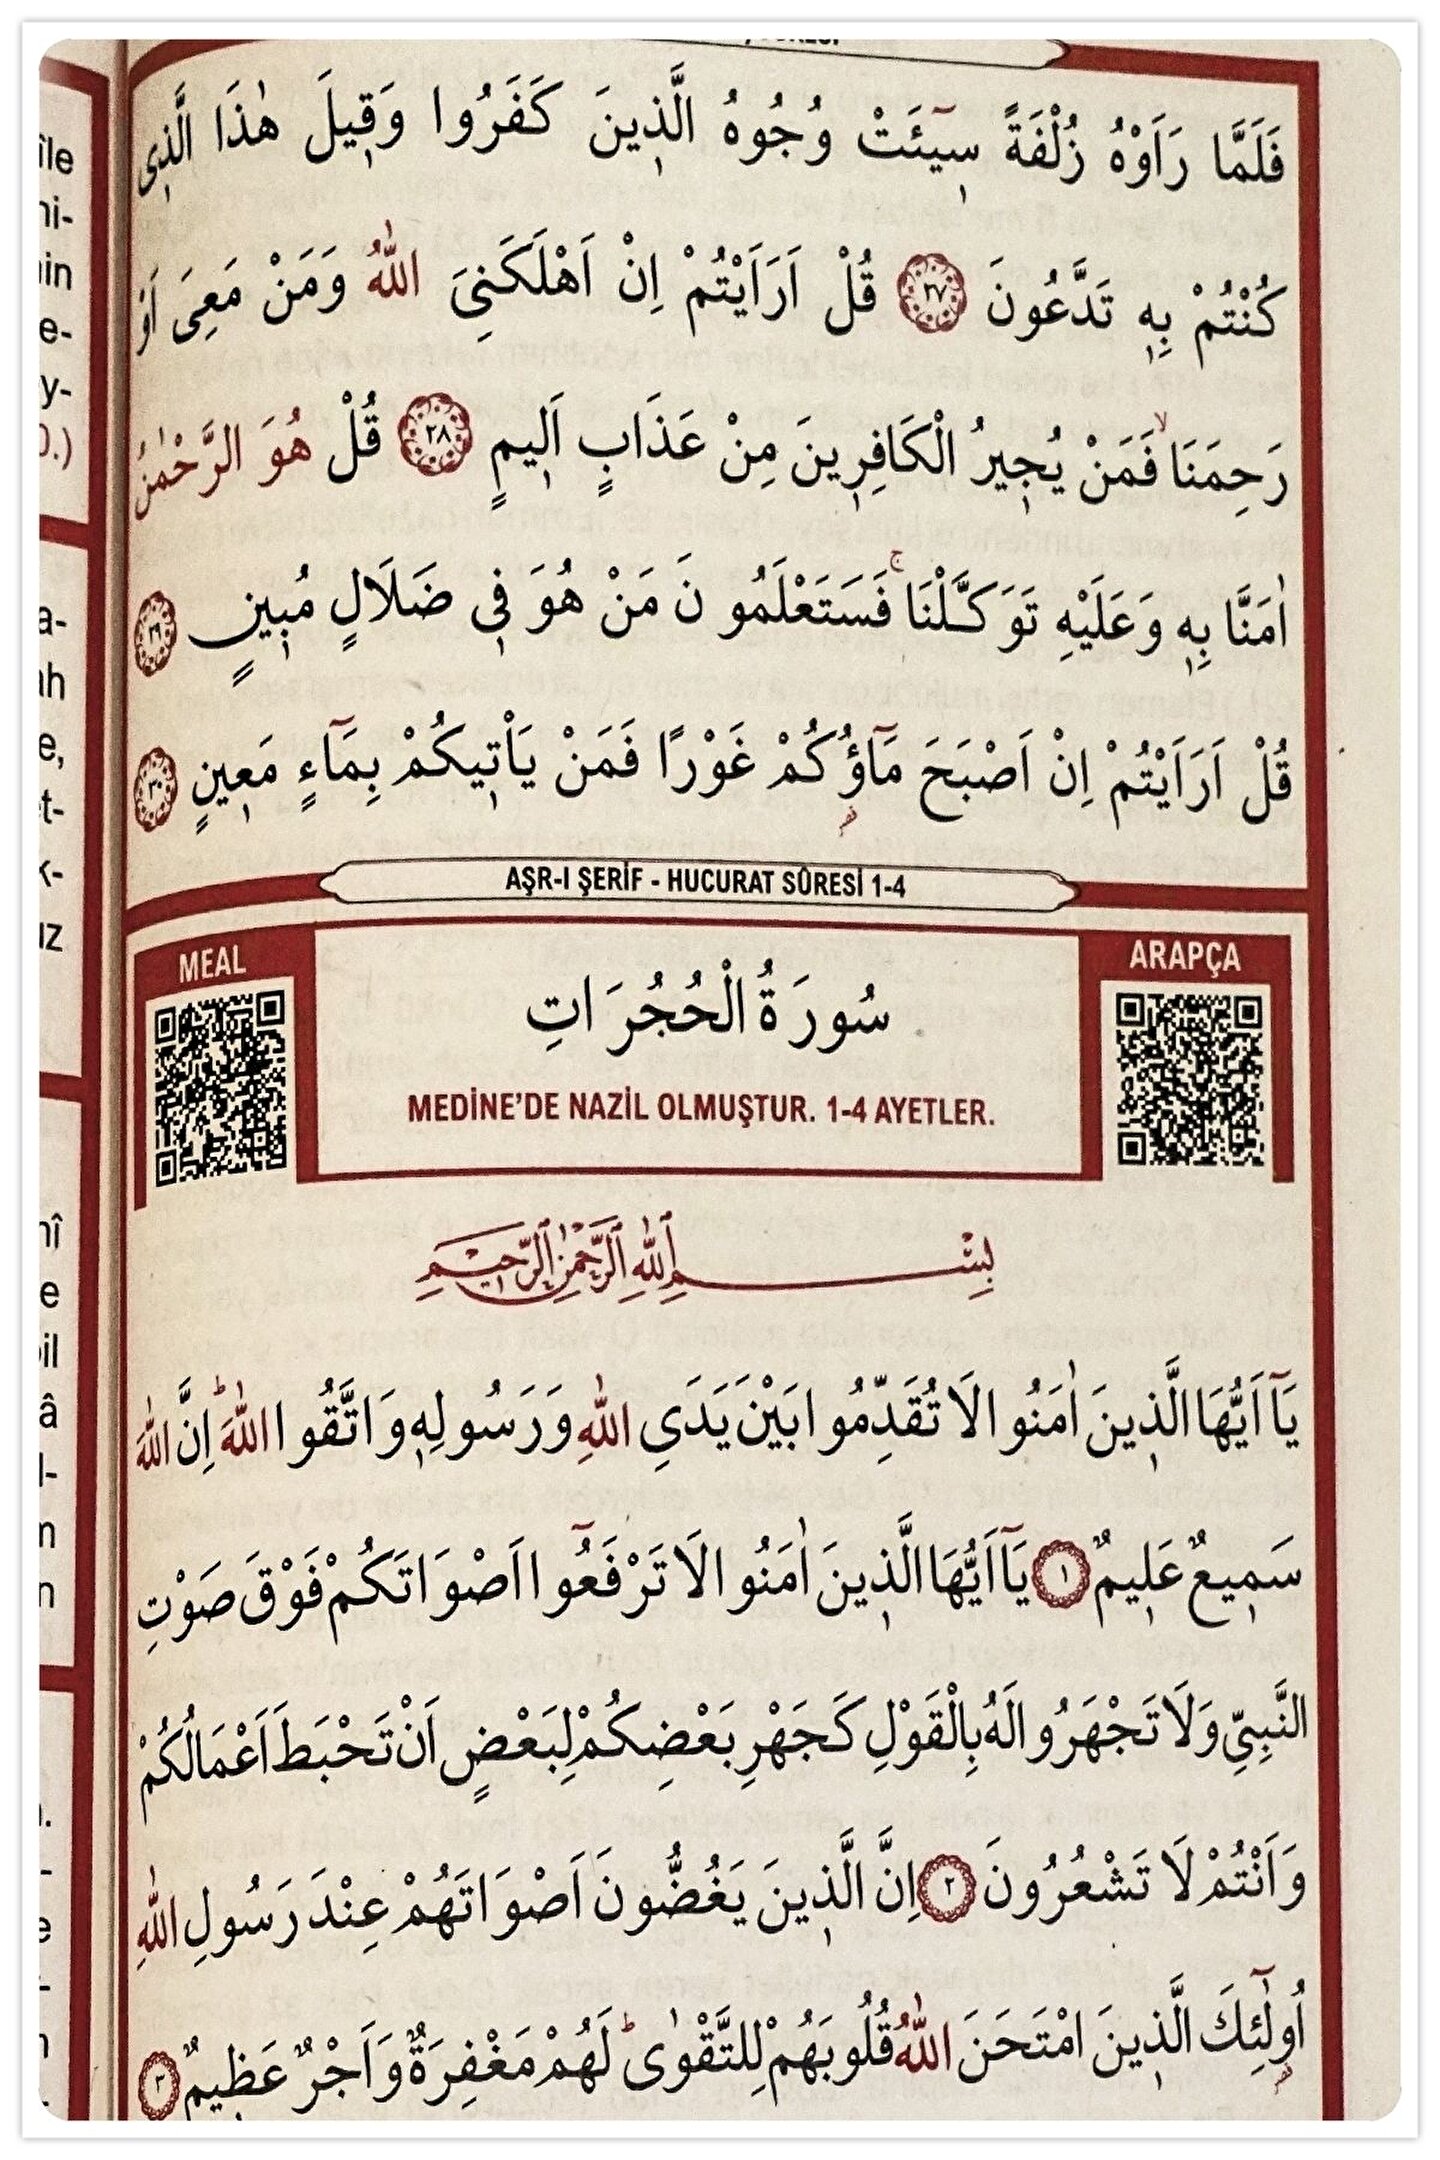 فَلَمَّا رَاَوْهُ زُلْفَةً سٖٓيئَتْ وُجُوهُ الَّذٖينَ كَفَرُوا وَقٖيلَ هٰذَا الَّذٖى
كُنْتُمْ بِهٖ تَدَّعُونَ ٢٧ قُلْ اَرَاَيْتُمْ اِنْ اَهْلَكَنِىَ اللّٰهُ وَمَنْ مَعِىَ اَوْ
رَحِمَنَاۙ فَمَنْ يُجٖيرُ الْكَافِرٖينَ مِنْ عَذَابٍ اَلٖيمٍ ٢٨ قُلْ هُوَ الرَّحْمٰنُ
اٰمَنَّا بِهٖ وَعَلَيْهِ تَوَكَّلْنَاۚ فَسَتَعْلَمُونَ مَنْ هُوَ فٖى ضَلَالٍ مُبٖينٍ ٢٩
قُلْ اَرَاَيْتُمْ اِنْ اَصْبَحَ مَٓاؤُ۬كُمْ غَوْرًا فَمَنْ يَاْتٖيكُمْ بِمَٓاءٍ مَعٖينٍ ٣٠
AŞR-I ŞERİF - HUCURAT SÛRESİ 1-4
MEAL
ARAPÇA
سُورَةُ الْحُجُرَاتِ
MEDİNE’DE NAZİL OLMUŞTUR. 1-4 AYETLER.
بِسْمِ اللّٰهِ الرَّحْمٰنِ الرَّحٖيمِ
يَٓا اَيُّهَا الَّذٖينَ اٰمَنُوا لَا تُقَدِّمُوا بَيْنَ يَدَىِ اللّٰهِ وَرَسُولِهٖ وَاتَّقُوا اللّٰهَؕ اِنَّ اللّٰهَ
سَمٖيعٌ عَلٖيمٌ ١ يَٓا اَيُّهَا الَّذٖينَ اٰمَنُوا لَا تَرْفَعُٓوا اَصْوَاتَكُمْ فَوْقَ صَوْتِ
النَّبِىِّ وَلَا تَجْهَرُوا لَهُ بِالْقَوْلِ كَجَهْرِ بَعْضِكُمْ لِبَعْضٍ اَنْ تَحْبَطَ اَعْمَالُكُمْ
وَاَنْتُمْ لَا تَشْعُرُونَ ٢ اِنَّ الَّذٖينَ يَغُضُّونَ اَصْوَاتَهُمْ عِنْدَ رَسُولِ اللّٰهِ
اُو۬لٰٓئِكَ الَّذٖينَ امْتَحَنَ اللّٰهُ قُلُوبَهُمْ لِلتَّقْوٰىؕ لَهُمْ مَغْفِرَةٌ وَاَجْرٌ عَظٖيمٌ ٣